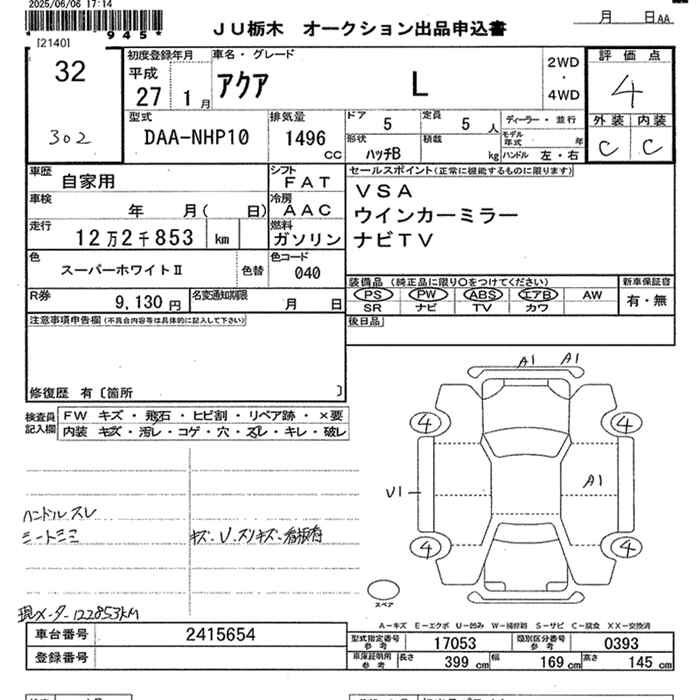 2025/06/06 17:14
*945*
[2140]
JU栃木 オークション出品申込書
月 日AA
32
302
初度登録年月
平成
27 1 月
車名・グレード
アクア L
2WD
・
4WD
評価点
4
外装 内装
C C
型式
DAA-NHP10
排気量
1496
CC
ドア
5
定員
5 人
形状
ハッチB
積載
kg
ディーラー・並行
モデル年式 年
ハンドル 左・右
車歴
自家用
シフト
FAT
車検
年 月( 日)
冷房
AAC
走行
12万2千853 km
燃料
ガソリン
色
スーパーホワイトⅡ
色替
色コード
040
R券
9,130 円
名変通知期限
月 日
セールスポイント(正常に機能するものに限ります)
VSA
ウインカーミラー
ナビTV
装備品 (純正品に限り○をつけてください)
PS PW ABS エアB AW
SR ナビ TV カワ
新車保証書
有・無
後日品
注意事項申告欄(不具合内容等は具体的に記入して下さい)
修復歴 有〔箇所 〕
検査員記入欄
FW キズ・飛石・ヒビ割・リペア跡・×要
内装 キズ・汚レ・コゲ・穴・スレ・キレ・破レ
ハンドルスレ
シートシミ
キズ・U・スリキズ・看板有
現メーター122853KM
A1 A1
4 4
A1
U1
4 4
スペア
A-キズ E-エクボ U-凹み W-補修跡 S-サビ C-腐食 XX-交換済
車台番号
2415654
登録番号
型式指定番号
参考
17053
類別区分番号
参考
0393
車庫証明用
参考
長さ
399 cm
幅
169 cm
高さ
145 cm